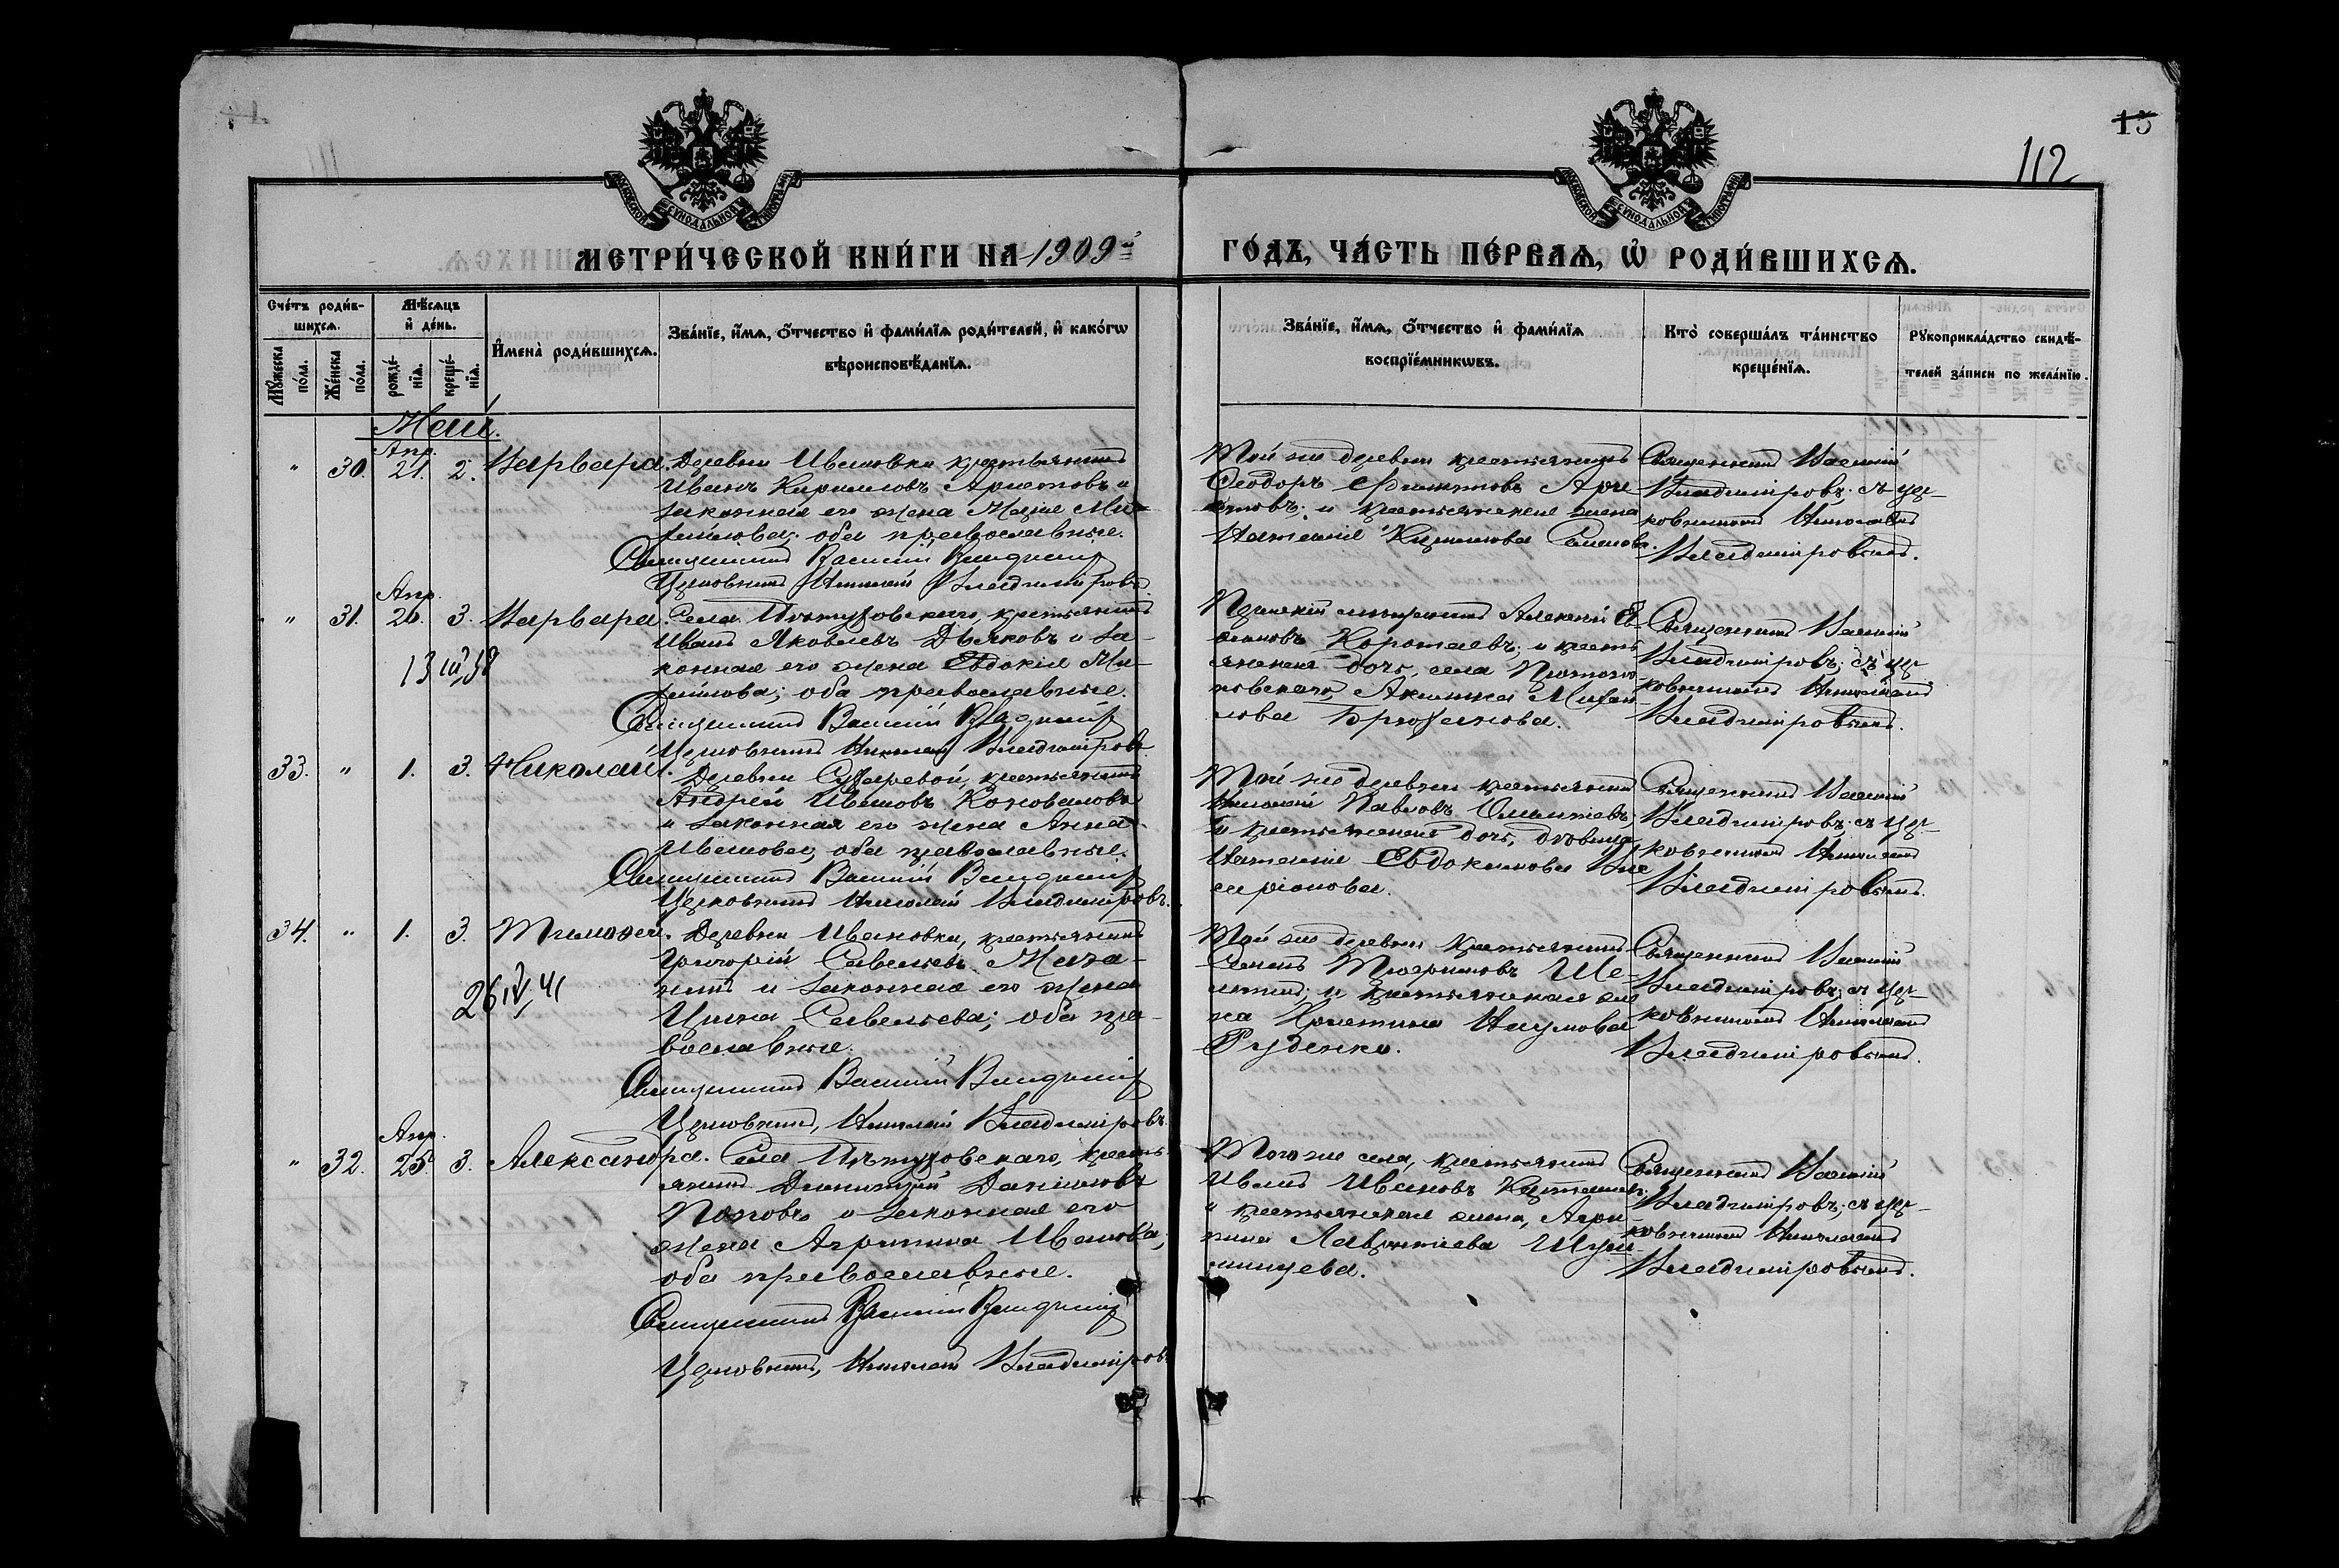 15
112
МОСКОВСКОЙ СѴНОДАЛЬНОЙ ТИПОГРАФІИ
МОСКОВСКОЙ СѴНОДАЛЬНОЙ ТИПОГРАФІИ
МЕТРИ́ЧЕСКОЙ КНИ́ГИ НА 1909й
ГО́ДЪ, ЧА́СТЬ ПЕ́РВАѦ, Ѡ҆ РОДИ́ВШИХСѦ.
Сче́тъ роди́в-
шихсѧ.
Мꙋжеска по́ла.
Же́нска по́ла.
Мѣ́сѧцъ
и҆ де́нь.
рожде́-
нїѧ.
креще́-
нїѧ.
И҆мена̀ роди́вшихсѧ.
Зва́нїе, и҆́мѧ, ѻ҆́тчество и҆ фами́лїѧ роди́телей, и҆ како́гѡ
вѣроисповѣ́данїѧ.
Зва́нїе, и҆́мѧ, ѻ҆́тчество и҆ фами́лїѧ
воспрїе́мникѡвъ.
Кто̀ соверша́лъ та́инство
креще́нїѧ.
Рꙋкоприкла́дство свидѣ́-
телей за́писи по жела́нїю.
Май.
" 30. Апр. 21. 2. Варвара.
Деревни Ивановки крестьянинъ
Иванъ Кирилловъ Аристовъ и
законная его жена Марія Ми-
хайлова; оба православные.
Священникъ Василій Владиміровъ
Церковникъ Николай Владиміровъ.
Той же деревни крестьянинъ
Ѳеодоръ
и крестьянская жена
Наталія Кириллова
Священникъ Василій
Владиміровъ; съ цер-
ковникомъ Николаемъ
Владиміровымъ.
" 31. Апр. 26. 3. Варвара.
13 III 38
Села Пѣтуховскаго, крестьянинъ
Иванъ Яковлевъ Дьяковъ и за-
конная его жена Евдокія Ми-
хайлова; оба православные.
Священникъ Василій Владиміровъ
Церковникъ Николай Владиміровъ
Алексѣй Еѳ-
имовъ Коротаевъ; и кресть
янская дочь, села Пѣтухо-
новскаго, Акилина Михай-
лова Брюханова.
Священникъ Василій
Владиміровъ; съ цер
ковникомъ Николаемъ
Владиміровымъ.
33. " 1. 3. Николай.
Деревни крестьянинъ
Андрей Ивановъ Коноваловъ
и законная его жена Анна
Иванова; оба православные.
Священникъ Василій Владиміровъ
Церковникъ Николай Владиміровъ.
Той же деревни крестьянинъ
Николай Павловъ
и крестьянская дочь, дѣвица,
Наталія Евдокимова Ила
ріонова.
Священникъ Василій
Владиміровъ; съ цер-
ковникомъ Николаемъ
Владиміровымъ.
34. " 1. 3. Тимоѳей.
26 IV 41
Деревни Ивановки, крестьянинъ
Григорій Савельевъ
и законная его жена
Ирина Савельева; оба пра-
вославные.
Священникъ Василій Владиміровъ
Церковникъ, Николай Владиміровъ.
Той же деревни крестьянинъ
Семенъ
и крестьянская же
на Христина Наумова
Руденко.
Священникъ Василій
Владиміровъ; съ цер-
ковникомъ Николаемъ
Владиміровымъ.
" 32. Апр. 25. 3. Александра.
Села Пѣтуховскаго, кресть-
янинъ Димитрій Даніиловъ
Поповъ и законная его
жена Агрипина Иванова;
оба православные.
Священникъ Василій Владиміровъ
Церковникъ, Николай Владиміровъ
Того же села, крестьянинъ
Иванъ Ивановъ
и крестьянская жена, Агри-
пина Лаврентіева
Священникъ Василій
Владиміровъ; съ цер-
ковникомъ Николаемъ
Владиміровымъ.